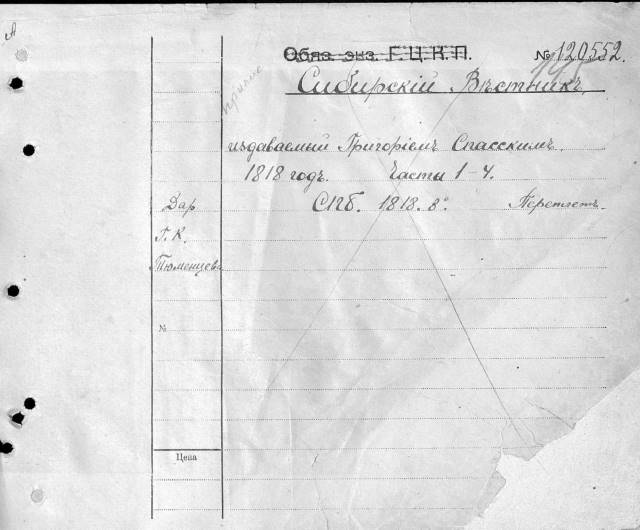 А
Обяз. экз. Г. Ц. К. П. № 120552.
Сибирскій Вѣстникъ,
издаваемый Григоріемъ Спасскимъ.
1818 годъ. Части 1-4.
Дар СПб. 1818. 8° Переплетъ.
Г. К.
Тюменцева
№
Цена